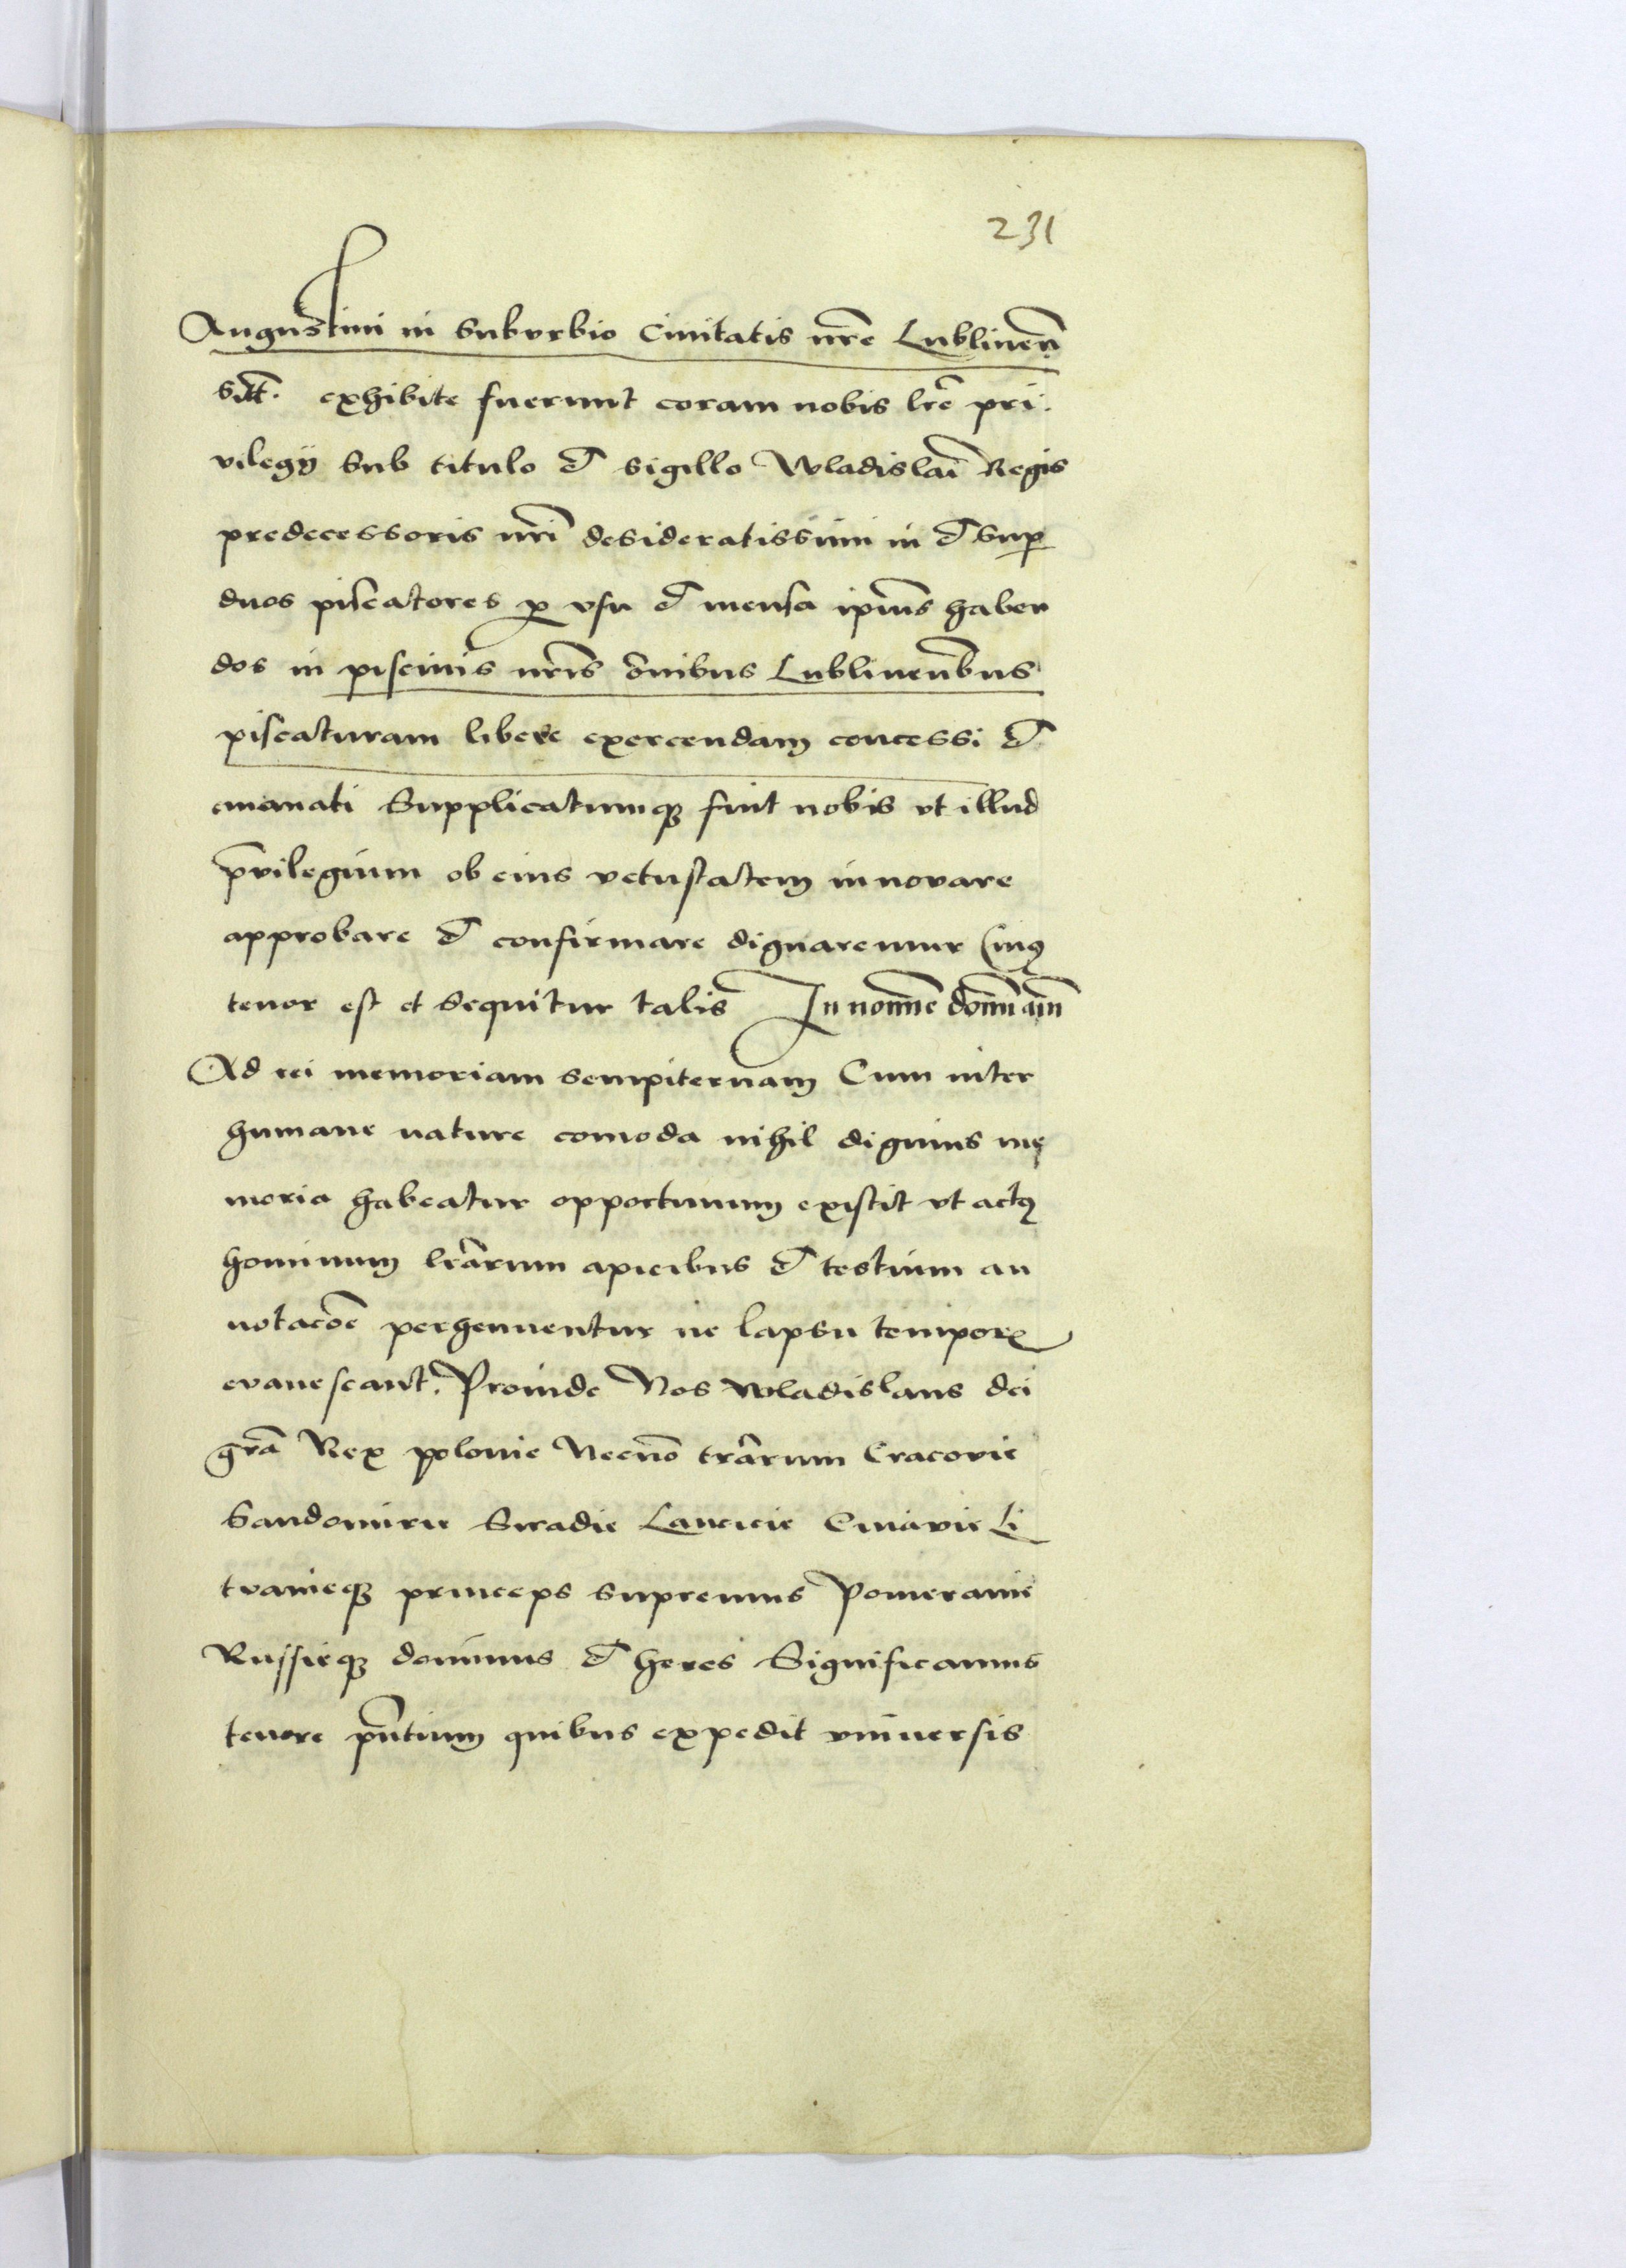 231
Augustini in suburbio Civitatis nr̃e Lublineñ
sitt. exhibite fuerunt coram nobis lr̃e pri.
vilegÿ sub titulo et sigillo Wladislai Regis
predecessoris nr̃i desideratissimi in et sup̱
duos piscatores ꝓ usu et mensa ip̃ius haben
dos in piscinis nr̃is õnibus Lublineñbus
piscaturam libere exercendam concessi et
emanati Supplicatumqȝ fuit nobis ut illud
p̃vilegium ob eius vetustatem innovare
approbare et confirmare dignaremur Cuiꝰ
tenor est et sequitur talis In nomĩe domĩ am̃
Ad rei memoriam sempiternam Cum inter
humane nature comoda nihil dignius me
moria habeatur opportunum existit ut actꝰ
hominum lr̃arum apicibus et testium an
notacõe perhennentur ne lapsu temporꝭ
evanescant. Proinde Nos Wladislaus dei
gr̃a Rex polonie Necnõ tr̃arum Cracovie
Sandomirie Siradie Lancicie Cuiavie Li
tvanieqȝ princeps supremus Pomeranie
Russieqȝ dominus et heres Significamus
tenore pñtium quibus expedit universis